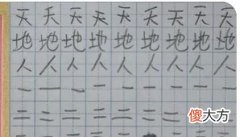 天天天天天天天天
地地地地地地地地
人人人人人人人人
二二二二二二二二
三三三三三三
傻大方